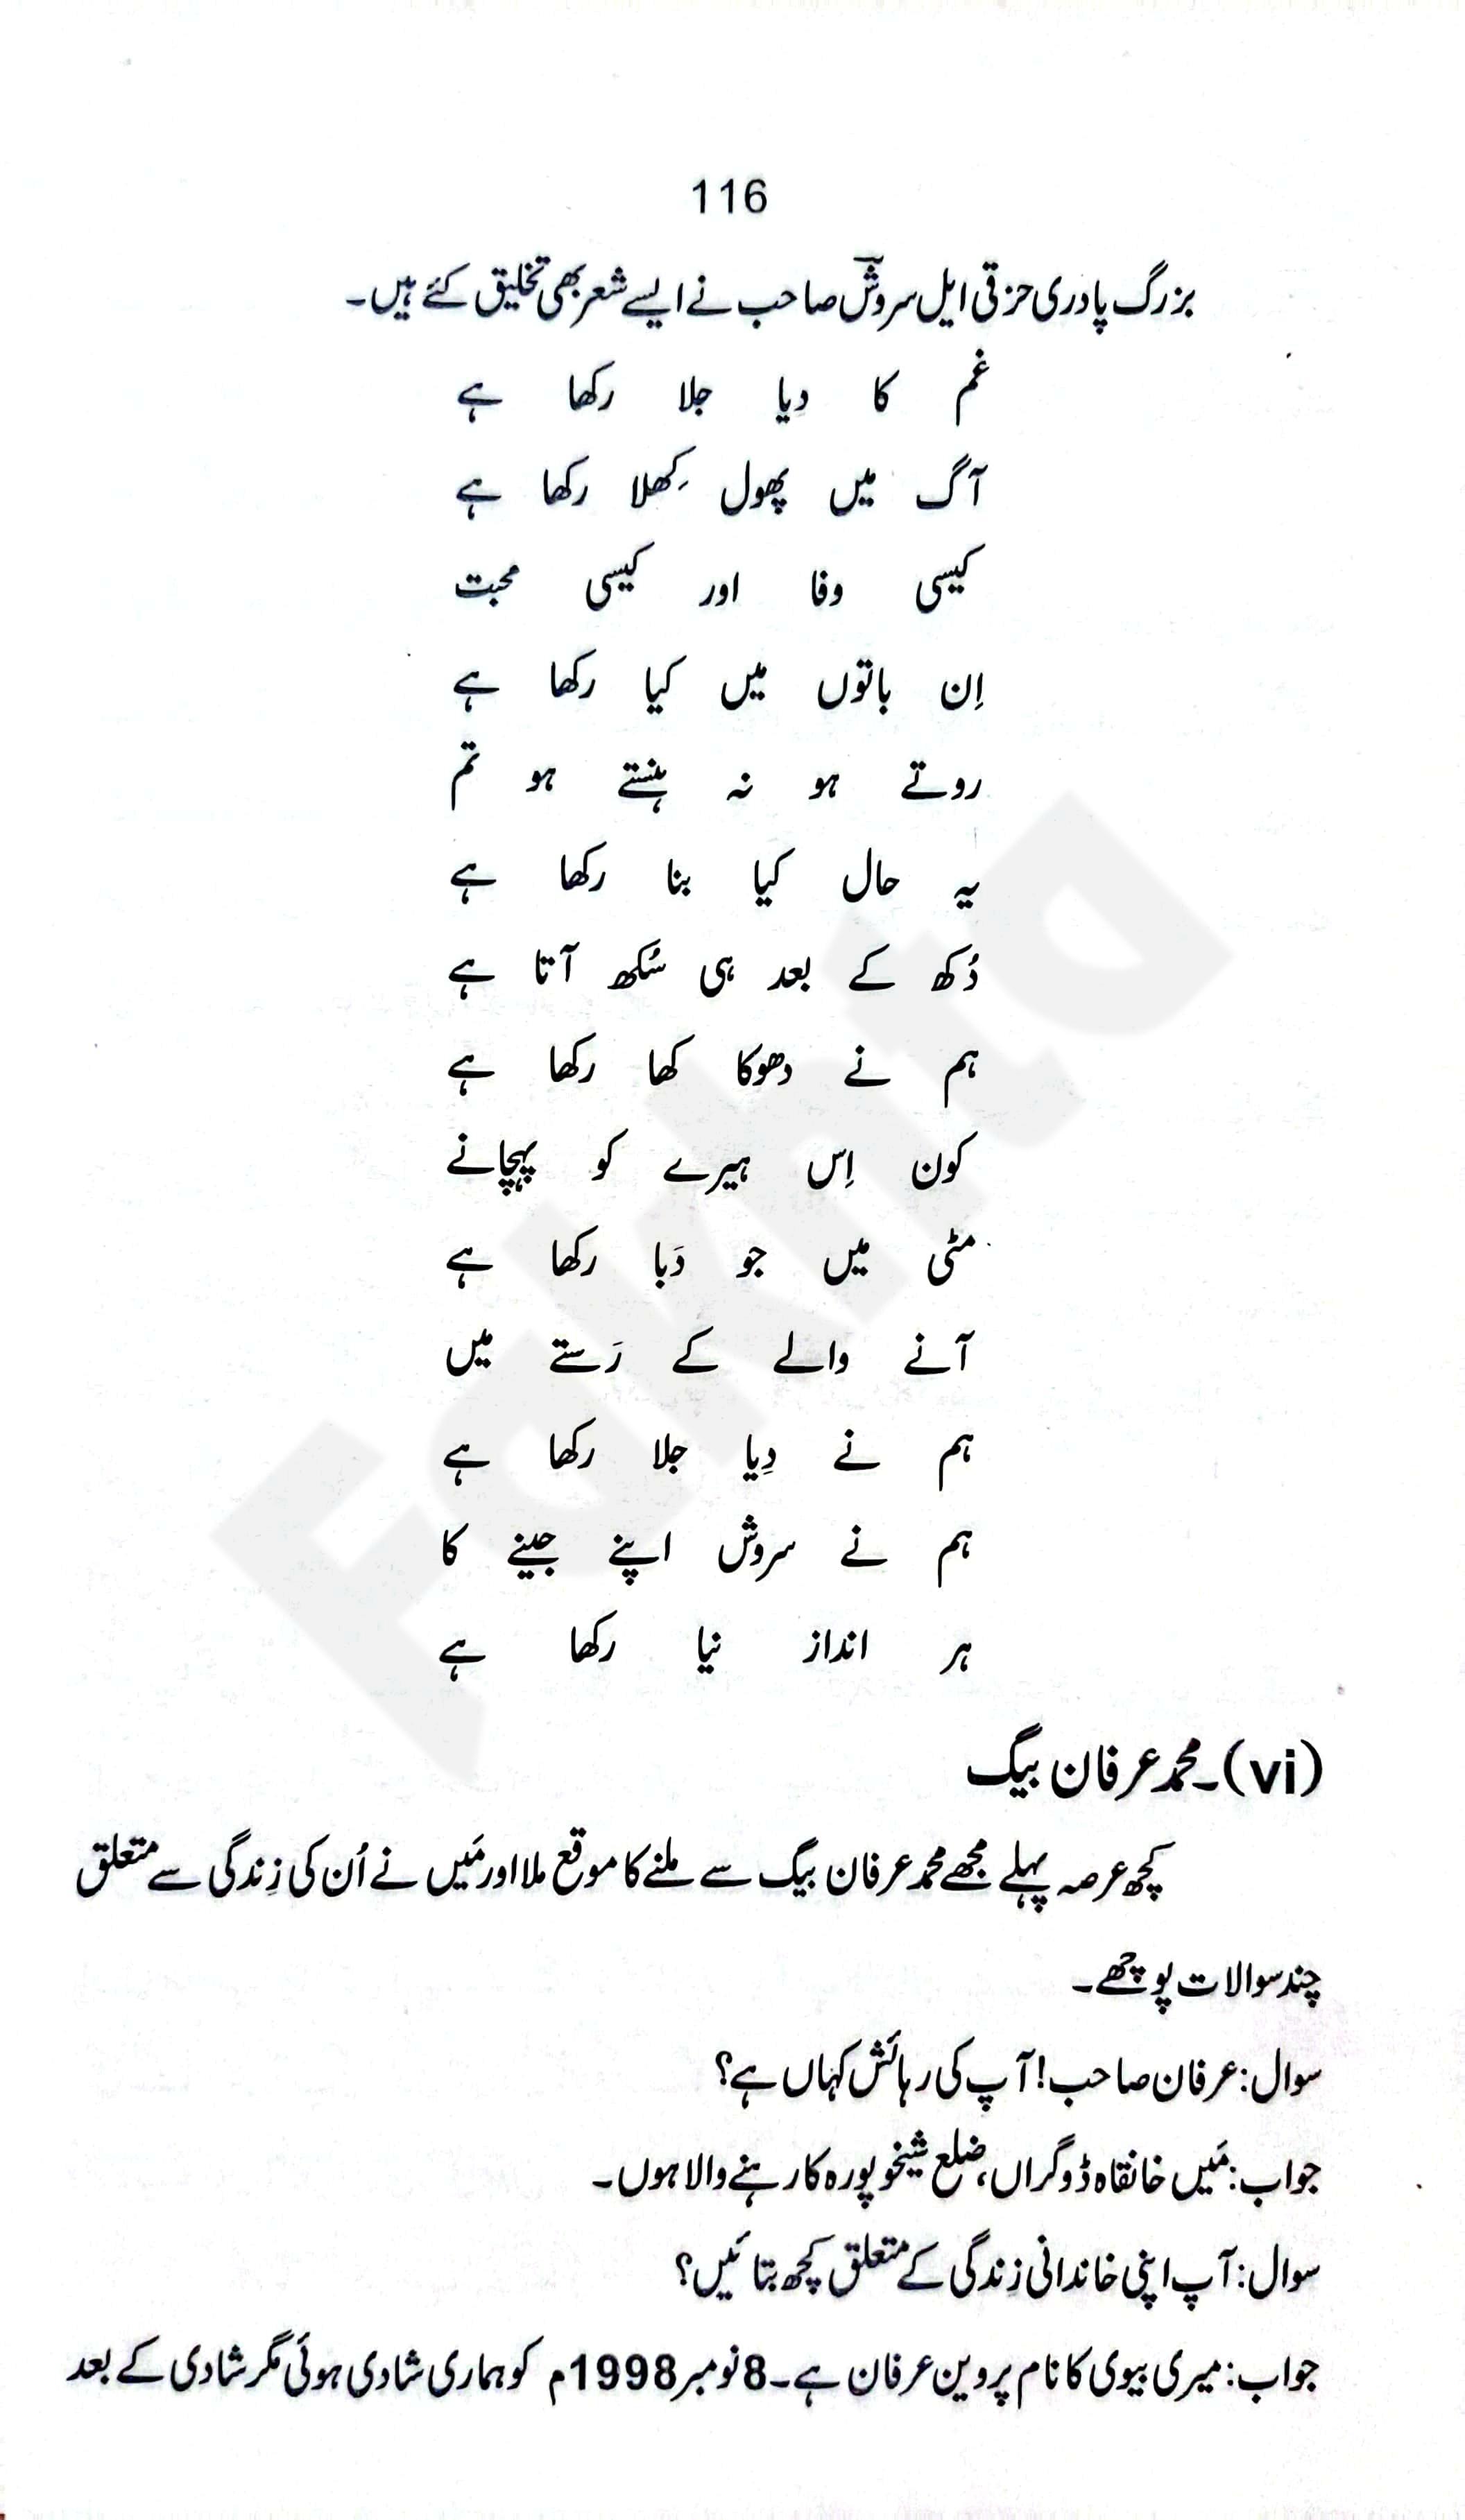 116
بزرگ پادری حزقی ایل سروشؔ صاحب نے ایسے شعر بھی تخلیق کئے ہیں۔
غم کا دِیا جلا رکھا ہے
آگ میں پھول کِھلا رکھا ہے
کیسی وفا اور کیسی محبت
اِن باتوں میں کیا رکھا ہے
روتے ہو نہ ہنستے ہو تم
یہ حال کیا بنا رکھا ہے
دُکھ کے بعد ہی سُکھ آتا ہے
ہم نے دھوکا کھا رکھا ہے
کون اِس ہیرے کو پہچانے
مٹی میں جو دَبا رکھا ہے
آنے والے کے رَستے میں
ہم نے دِیا جلا رکھا ہے
ہم نے سروش اپنے جینے کا
ہر انداز نیا رکھا ہے
(vi)۔محمد عرفان بیگ
کچھ عرصہ پہلے مجھے محمد عرفان بیگ سے ملنے کا موقع ملا اور مَیں نے اُن کی زِندگی سے متعلق
چند سوالات پوچھے۔
سوال: عرفان صاحب! آپ کی رہائش کہاں ہے؟
جواب: مَیں خانقاہ ڈوگراں، ضلع شیخوپورہ کا رہنے والا ہوں۔
سوال: آپ اپنی خاندانی زِندگی کے متعلق کچھ بتائیں؟
جواب: میری بیوی کا نام پروین عرفان ہے۔ 8 نومبر 1998م کو ہماری شادی ہوئی مگر شادی کے بعد
Fakhta